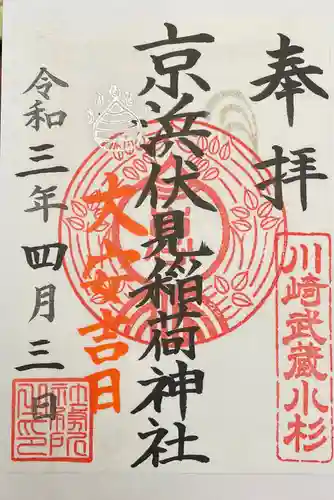 奉拝
川崎武蔵小杉
京浜伏見稲荷神社
大安吉日
令和三年四月三日